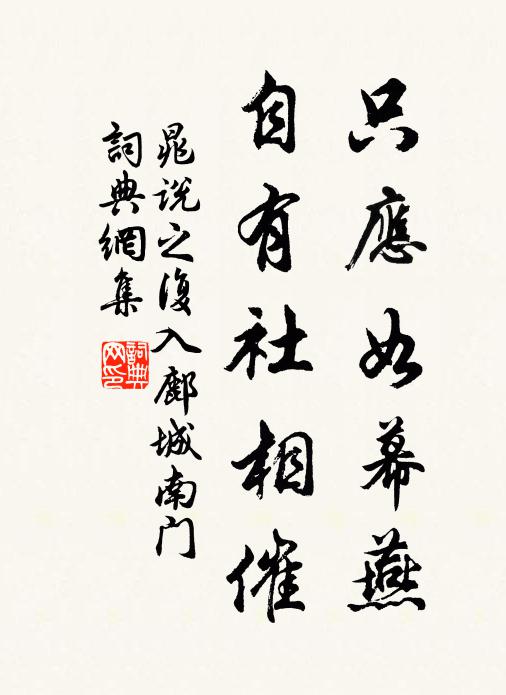 只應如幕燕
自有社相催
晁説之復入鄜城南门
詞典網集
詞典网印